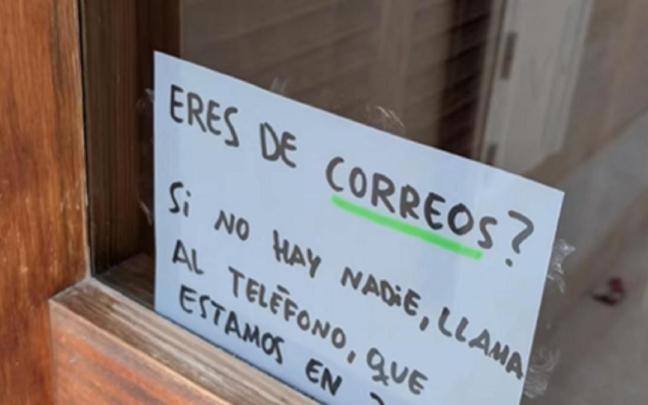 ERES DE CORREOS?
Si NO HAY NADiE, LLAMA
AL TELÉFONO, QUE
ESTAMOS EN